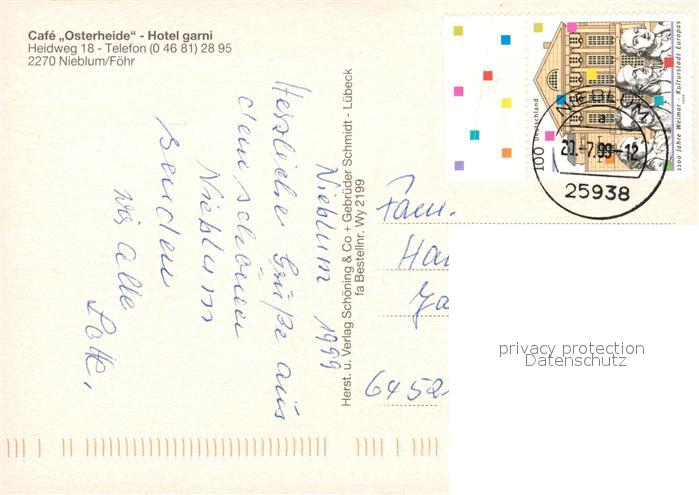 Café „Osterheide“ - Hotel garni
Heidweg 18 - Telefon (0 46 81) 28 95
2270 Nieblum/Föhr
Nieblum 1999
Herzliche Grüße aus
dem schönen
Nieblum
senden
wir alle
Herst. u. Verlag Schöning & Co + Gebrüder Schmidt - Lübeck
fa Bestellnr. Wy 2199
100
Deutschland
1100 Jahre Weimar - Kulturstadt Europas
1999
a
20.-7.99-12
25938
Fam.
Ha
Ja
6452
privacy protection
Datenschutz